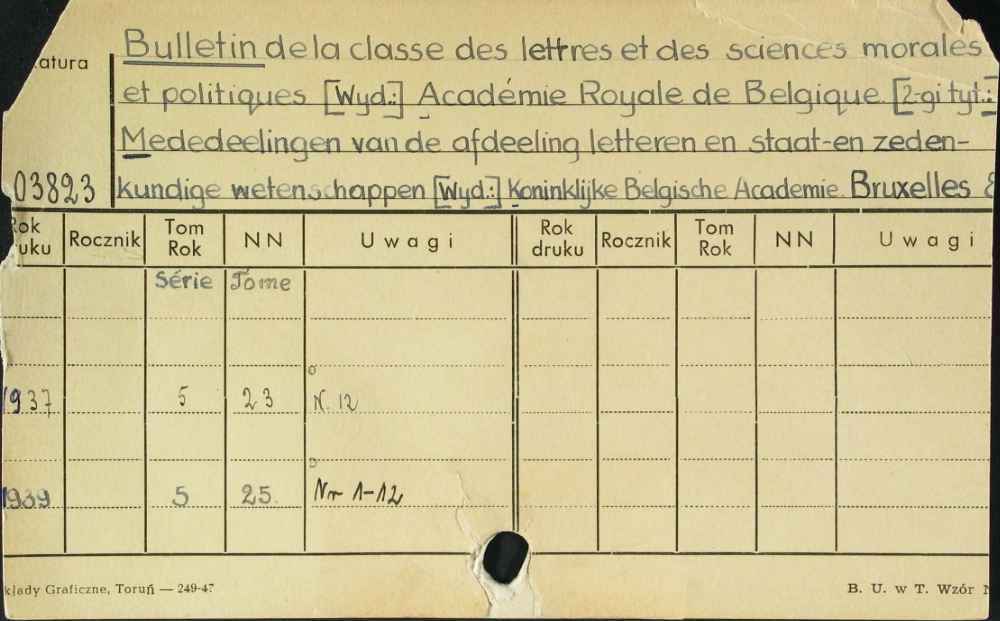 Bulletin de la classe des lettres et des sciences morales
atura
et politiques [Wyd.:] Académie Royale de Belgique [2-gi tyt.:
Mededeelingen van de afdeeling letteren en staat-en zeden-
03823 kundige wetenschappen [Wyd.:] Koninklijke Belgische Academie. Bruxelles
Rok uku Rocznik Tom Rok NN Uwagi Rok druku Rocznik Tom Rok NN Uwagi
Série Tome
1937 5 23 N. 12
1939 5 25. Nr 1-12
kłady Graficzne, Toruń — 249-47 B. U. w T. Wzór